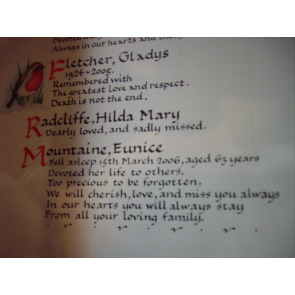 Always in our hearts and
Fletcher, Gladys
1924-2005.
Remembered with
The greatest love and respect.
Death is not the end.
Radcliffe, Hilda Mary
Dearly loved, and sadly missed.
Mountaine, Eunice
Fell asleep 15th March 2006, aged 63 years
Devoted her life to others,
Too precious to be forgotten,
We will cherish, love, and miss you always
In our hearts you will always stay
From all your loving family.